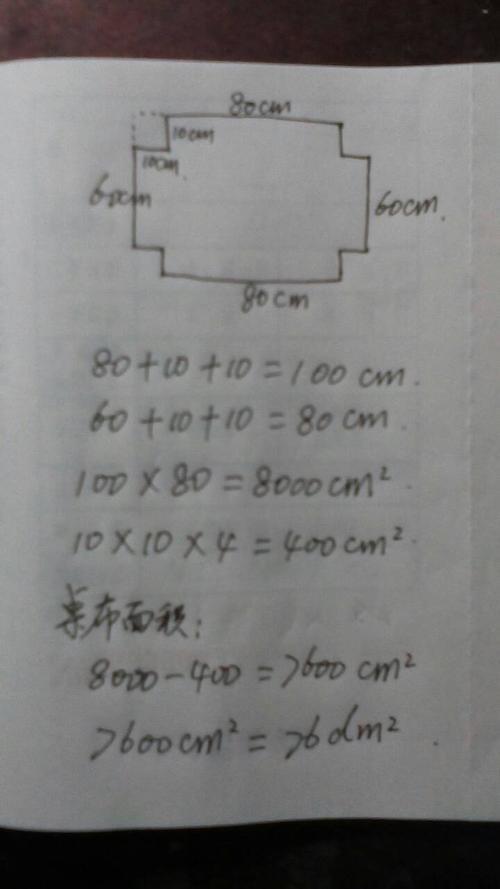 80cm
10cm
10cm
60cm
60cm.
80cm
80+10+10=100 cm.
60+10+10=80 cm.
100×80=8000cm².
10×10×4=400cm².
桌布面积:
8000-400=7600 cm²
7600cm²=76dm².